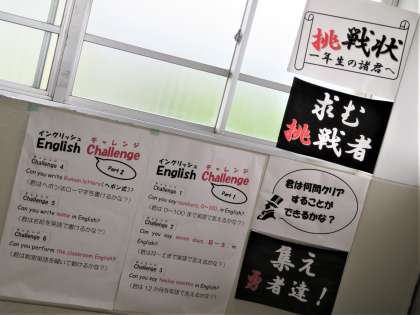 イングリッシュ チャレンジ
English Challenge
Part 2
チャレンジ 4
Can you write Roman letters(ヘボン式)?
(君はヘボン式ローマ字を書けるかな?)
チャレンジ 5
Can you write name in English?
(君はお名前を英語で書けるかな?)
チャレンジ 6
Can you perform the classroom English?
(君は教室英語を聞いて動けるかな?)
イングリッシュ チャレンジ
English Challenge
Part 1
チャレンジ 1
Can you say numbers, 0~100, in English?
(君は0~100まで英語で言えるかな?)
チャレンジ 2
Can you say seven days, 日~土, in English?
(君は日~土まで英語で言えるかな?)
チャレンジ 3
Can you say twelve months in English?
(君は12か月を英語で言えるかな?)
挑戦状
一年生の諸君へ
求む
挑戦者
君は何問クリア
することが
できるかな?
集え
勇者達!